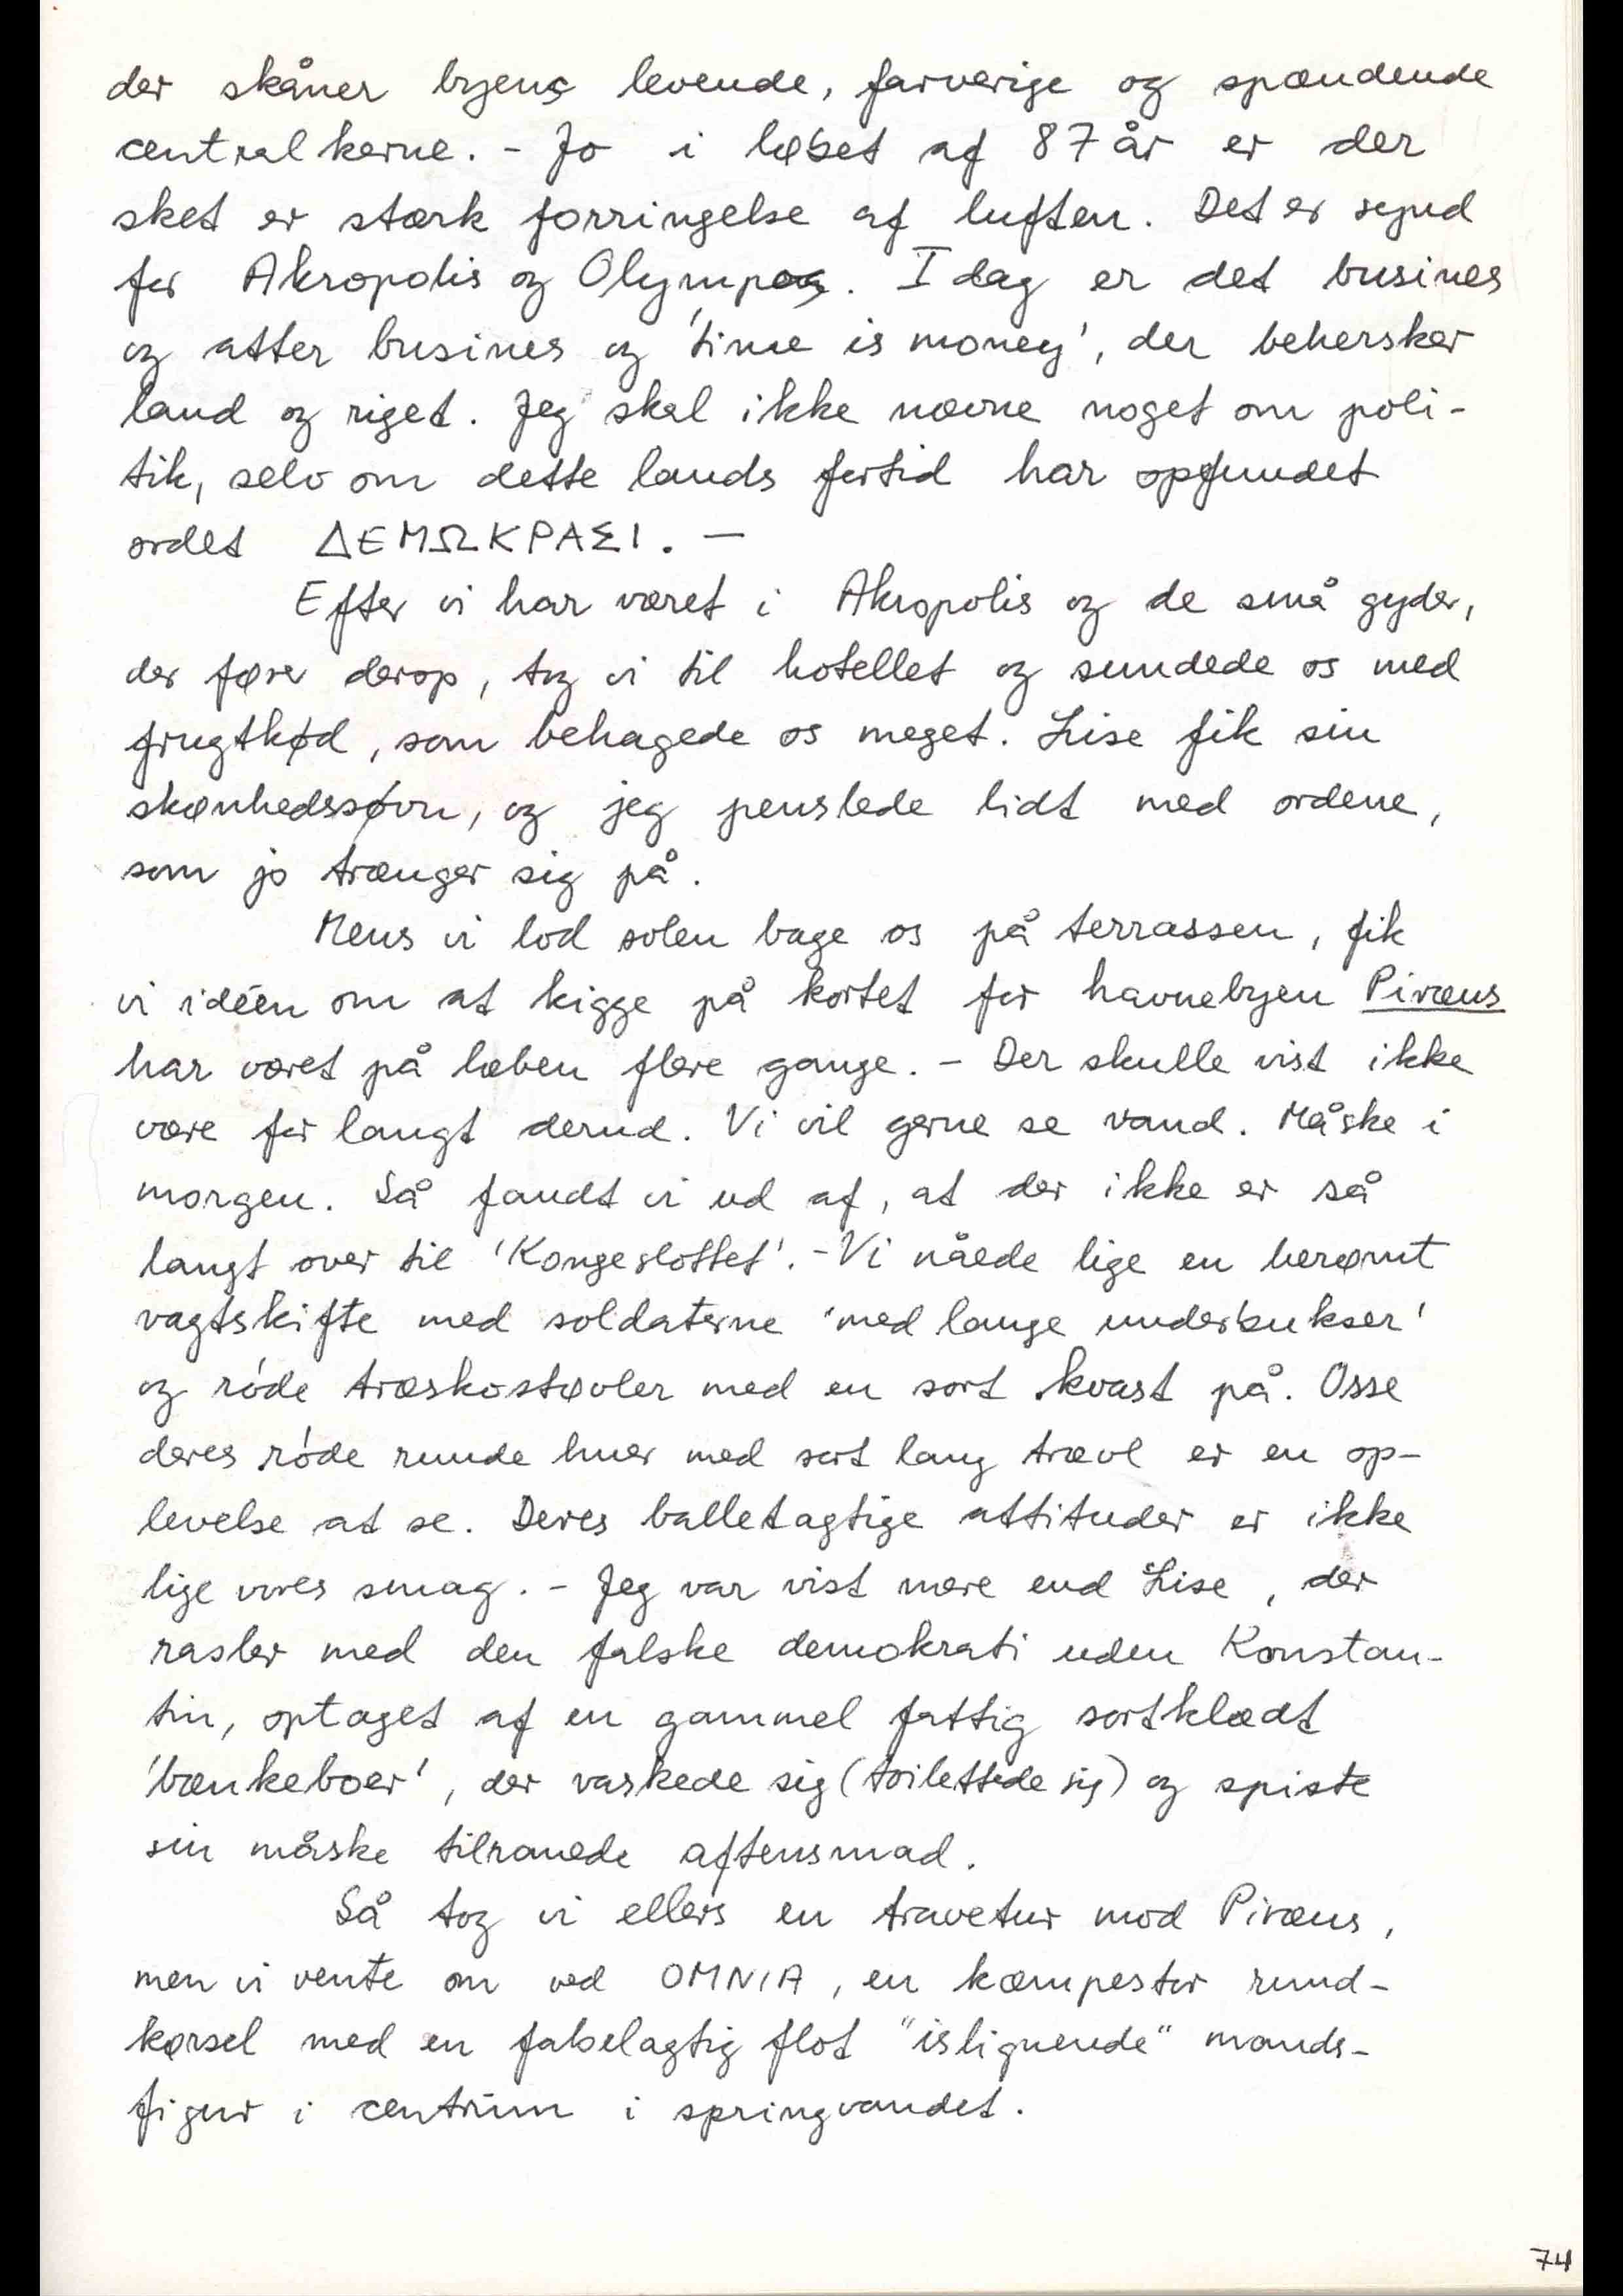 der skåner byens levende, farverige og spændende
centralkerne. - Jo i løbet af 87 år er der
sket er stærk forringelse af luften. Det er synd
for Akropolis og Olympos. I dag er det busines
og atter busines og 'time is money', der behersker
land og riget. Jeg skal ikke nævne noget om poli-
tik, selv om dette lands fortid har opfundet
ordet ΔΕΜΩΚΡΑΣΙ. —
Efter vi har været i Akropolis og de små gyder,
der fører derop, tog vi til hotellet og sundede os med
frugtkød, som behagede os meget. Lise fik sin
skønhedssøvn, og jeg penslede lidt med ordene,
som jo trænger sig på.
Mens vi lod solen bage os på terrassen, fik
vi idéen om at kigge på kortet for havnebyen Piræus
har været på læben flere gange. - Der skulle vist ikke
være for langt derud. Vi vil gerne se vand. Måske i
morgen. Så fandt vi ud af, at der ikke er så
langt over til 'Kongeslottet'. - Vi nåede lige en berømt
vagtskifte med soldaterne 'med lange underbukser'
og røde træskostøvler med en sort kvast på. Osse
deres røde runde huer med sort lang trævl er en op-
levelse at se. Deres balletagtige attituder er ikke
lige vores smag. - Jeg var vist mere end Lise, der
rasler med den falske demokrati uden Konstan-
tin, optaget af en gammel fattig sortklædt
'bænkeboer', der vaskede sig (toilettede sig) og spiste
sin måske tilranede aftensmad.
Så tog vi ellers en travetur mod Piræus,
men vi vente om ved OMNIA, en kæmpestor rund-
kørsel med en fabelagtig flot "islignende" mands-
figur i centrum i springvandet.
74